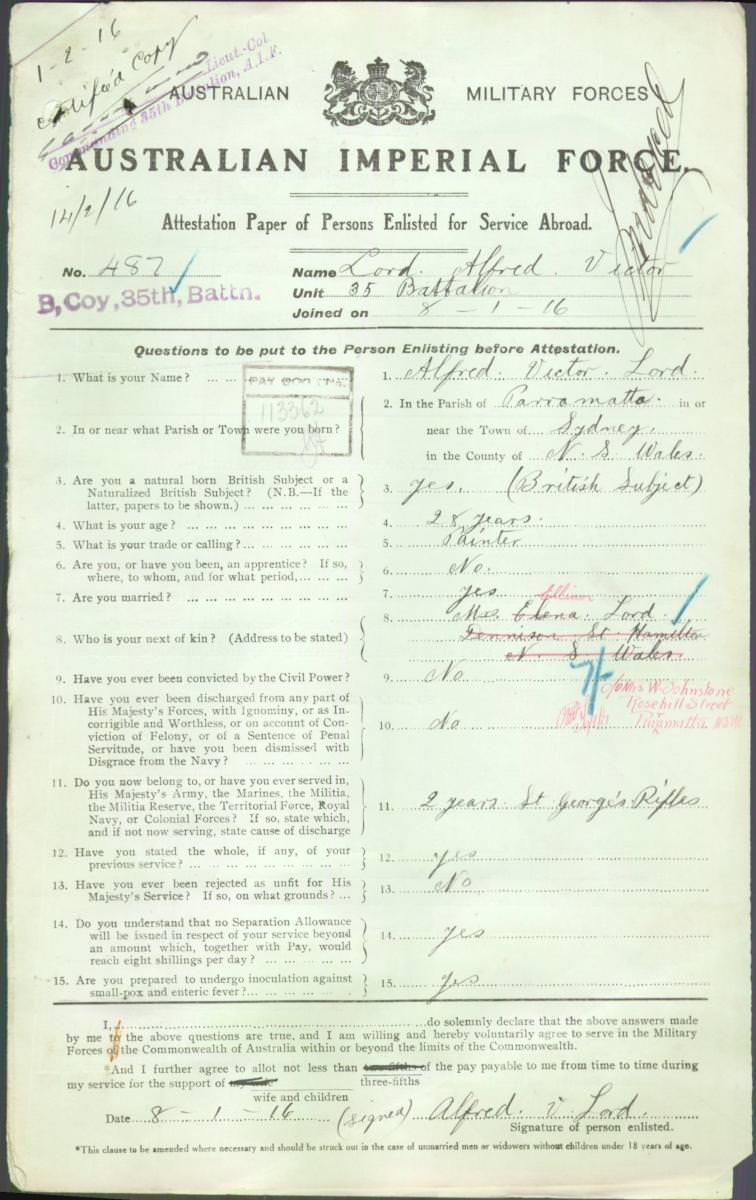 1-2-16
Certified Copy
Lieut.-Col.
Commanding 35th Battalion, A.I.F.
AUSTRALIAN MILITARY FORCES
AUSTRALIAN IMPERIAL FORCE.
14/2/16
Attestation Paper of Persons Enlisted for Service Abroad.
No. 487 Name Lord. Alfred. Victor
B, Coy, 35th, Battn. Unit 35 Battalion
Joined on 8-1-16
Questions to be put to the Person Enlisting before Attestation.
1. What is your Name? ... ... 1. Alfred. Victor. Lord.
113362
2. In or near what Parish or Town were you born? 2. In the Parish of Parramatta. in or
near the Town of Sydney.
in the County of N. S. Wales.
3. Are you a natural born British Subject or a
Naturalized British Subject? (N.B.—If the
latter, papers to be shown.) 3. yes. (British Subject)
4. What is your age? 4. 28 years.
5. What is your trade or calling? 5. Painter
6. Are you, or have you been, an apprentice? If so,
where, to whom, and for what period, 6. No.
7. Are you married? 7. yes
8. Who is your next of kin? (Address to be stated) 8. Mrs Elena. Lord.
Dennison St Hamilton
N S Wales.
c/o Mrs W. Johnstone
Rosehill Street
Parramatta NSW
9. Have you ever been convicted by the Civil Power? 9. No
10. Have you ever been discharged from any part of
His Majesty's Forces, with Ignominy, or as In-
corrigible and Worthless, or on account of Con-
viction of Felony, or of a Sentence of Penal
Servitude, or have you been dismissed with
Disgrace from the Navy? 10. No
11. Do you now belong to, or have you ever served in,
His Majesty's Army, the Marines, the Militia,
the Militia Reserve, the Territorial Force, Royal
Navy, or Colonial Forces? If so, state which,
and if not now serving, state cause of discharge 11. 2 years. St George's Rifles
12. Have you stated the whole, if any, of your
previous service? 12. yes
13. Have you ever been rejected as unfit for His
Majesty's Service? If so, on what grounds? 13. No
14. Do you understand that no Separation Allowance
will be issued in respect of your service beyond
an amount which, together with Pay, would
reach eight shillings per day? 14. yes
15. Are you prepared to undergo inoculation against
small-pox and enteric fever? 15. yes
I, do solemnly declare that the above answers made
by me to the above questions are true, and I am willing and hereby voluntarily agree to serve in the Military
Forces of the Commonwealth of Australia within or beyond the limits of the Commonwealth.
*And I further agree to allot not less than two-fifths of the pay payable to me from time to time during
three-fifths
my service for the support of my wife
wife and children
Date 8-1-16 (signed) Alfred. V. Lord.
Signature of person enlisted.
*This clause to be amended where necessary and should be struck out in the case of unmarried men or widowers without children under 18 years of age.